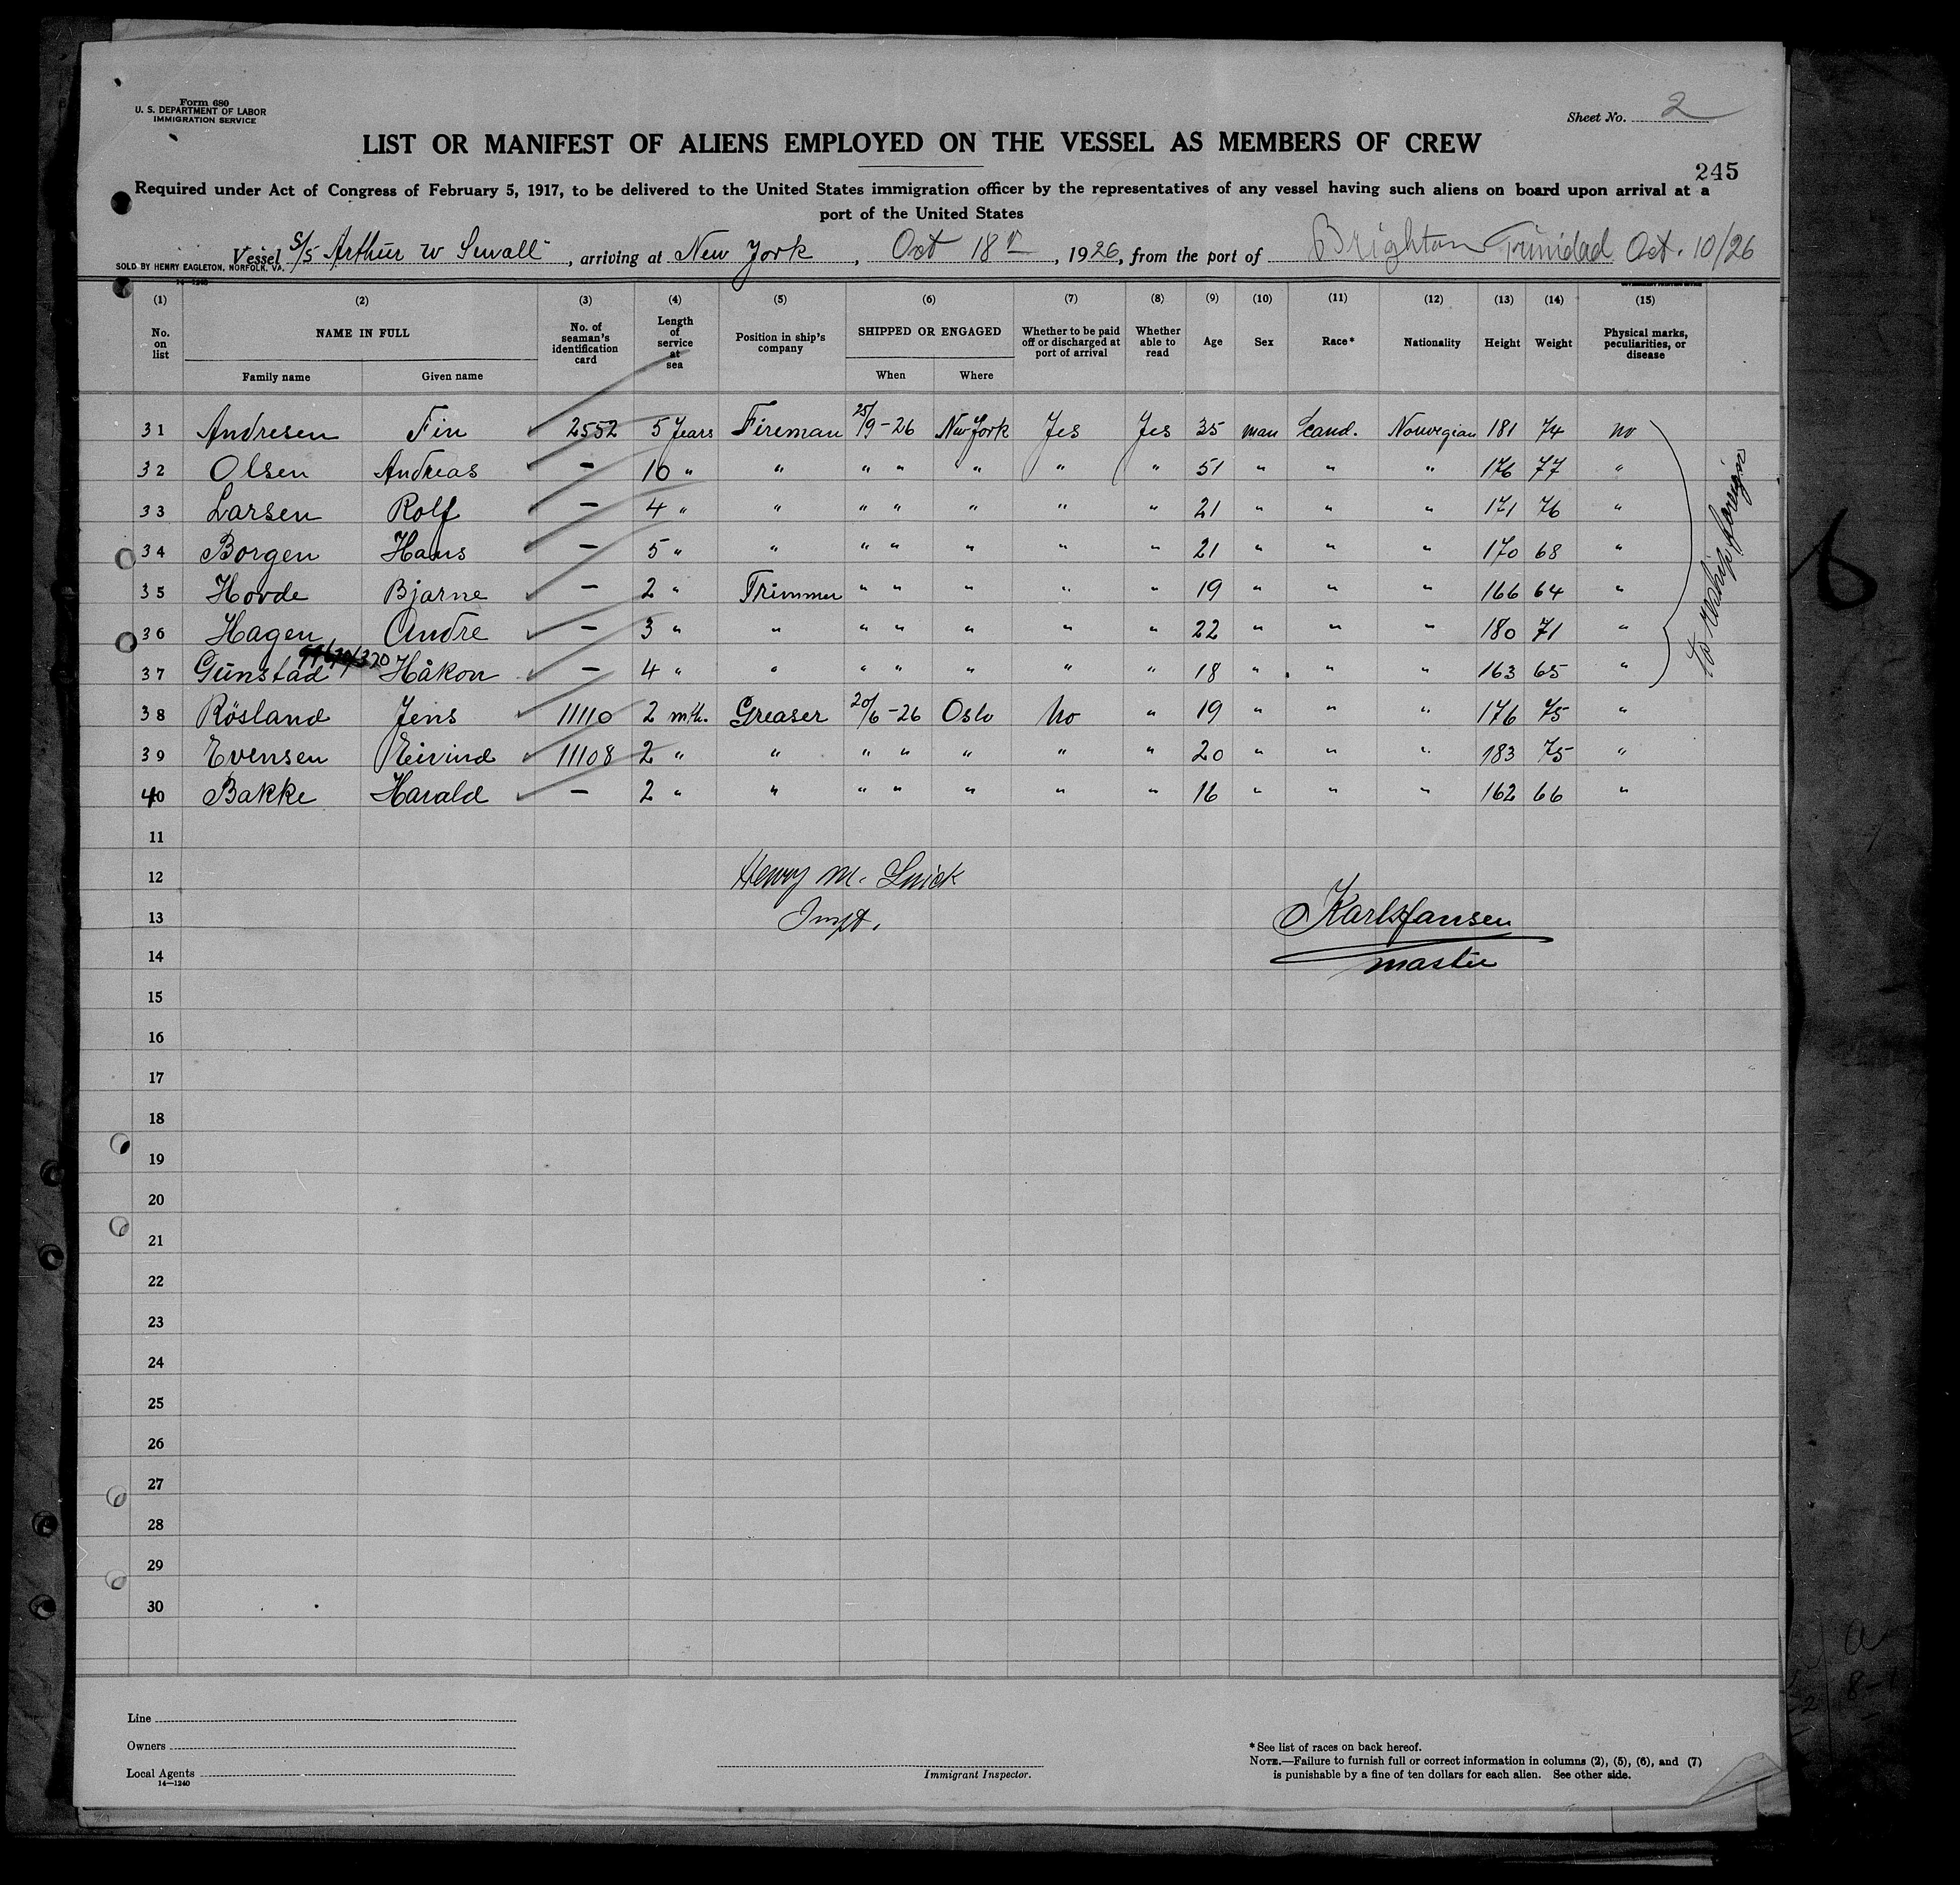 Form 680
U. S. DEPARTMENT OF LABOR
IMMIGRATION SERVICE
Sheet No. 2
LIST OR MANIFEST OF ALIENS EMPLOYED ON THE VESSEL AS MEMBERS OF CREW
245
Required under Act of Congress of February 5, 1917, to be delivered to the United States immigration officer by the representatives of any vessel having such aliens on board upon arrival at a
port of the United States
Vessel S/S Arthur W Sewall, arriving at New York, Oct 18, 1926, from the port of Brighton Trinidad Oct. 10/26
SOLD BY HENRY EAGLETON, NORFOLK, VA.
14—1240
(1) (2) (3) (4) (5) (6) (7) (8) (9) (10) (11) (12) (13) (14) (15)
No. on list NAME IN FULL No. of seaman's identification card Length of service at sea Position in ship's company SHIPPED OR ENGAGED Whether to be paid off or discharged at port of arrival Whether able to read Age Sex Race* Nationality Height Weight Physical marks, peculiarities, or disease
Family name Given name When Where
31 Andresen Fin 2552 5 Years Fireman 25/9-26 New York Yes Yes 35 man Scand. Norwegian 181 74 no
32 Olsen Andreas — 10 " " " " " " " 51 " " " 176 77 "
33 Larsen Rolf — 4 " " " " " " " 21 " " " 171 76 "
34 Borgen Hans — 5 " " " " " " " 21 " " " 170 68 "
35 Hovde Bjarne — 2 " Trimmer " " " " " 19 " " " 166 64 "
36 Hagen Andre — 3 " " " " " " " 22 " " " 180 71 "
37 Gunstad Håkon — 4 " " " " " " " 18 " " " 163 65 "
to reship foreign
38 Rösland Jens 11110 2 mth. Greaser 20/6-26 Oslo No " 19 " " " 176 75 "
39 Evensen Eivind 11108 2 " " " " " " " 20 " " " 183 75 "
40 Bakke Harald — 2 " " " " " " " 16 " " " 162 66 "
11
12 Henry M.
13 Inspt. Karl Hansen
14 master
15
16
17
18
19
20
21
22
23
24
25
26
27
28
29
30
Line
Owners
Local Agents
14—1240
Immigrant Inspector.
*See list of races on back hereof.
NOTE.—Failure to furnish full or correct information in columns (2), (5), (6), and (7)
is punishable by a fine of ten dollars for each alien. See other side.